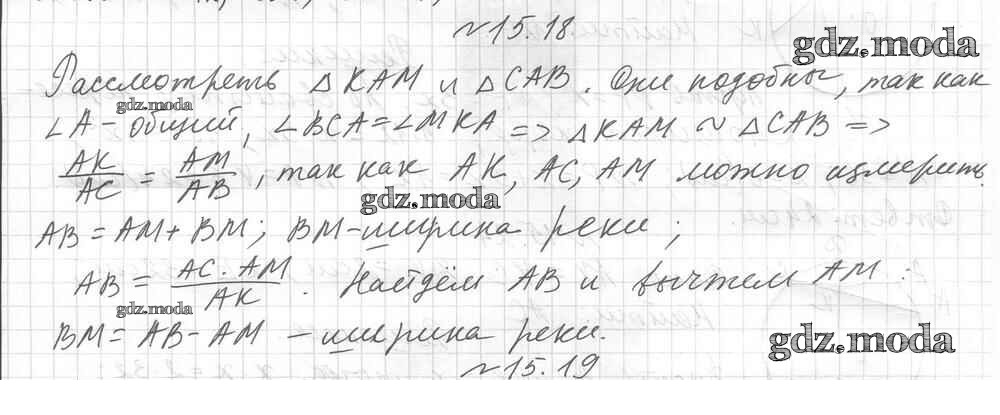 №15.18
gdz.moda
Рассмотреть △KAM и △CAB. Они подобны, так как
gdz.moda
∠A - общий, ∠BCA = ∠MKA => △KAM ~ △CAB =>
AK/AC = AM/AB, так как AK, AC, AM можно измерить.
gdz.moda
AB = AM + BM; BM - ширина реки;
AB = AC · AM/AK. Найдём AB и вычтем AM:
gdz.moda
BM = AB - AM - ширина реки.
gdz.moda
№15.19